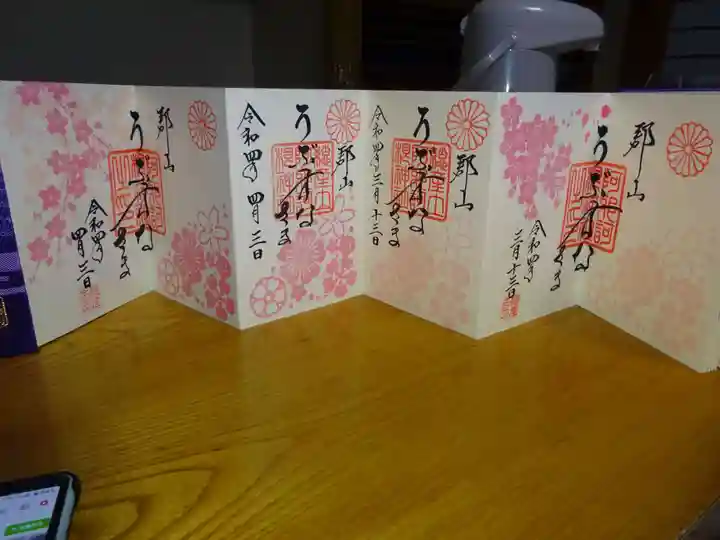 郡山
うぶすなさま
令和四年
三月十三日
郡山
うぶすなさま
令和四年三月十三日
郡山
うぶすなさま
令和四年 四月三日
郡山
うぶすなさま
令和四年
四月三日